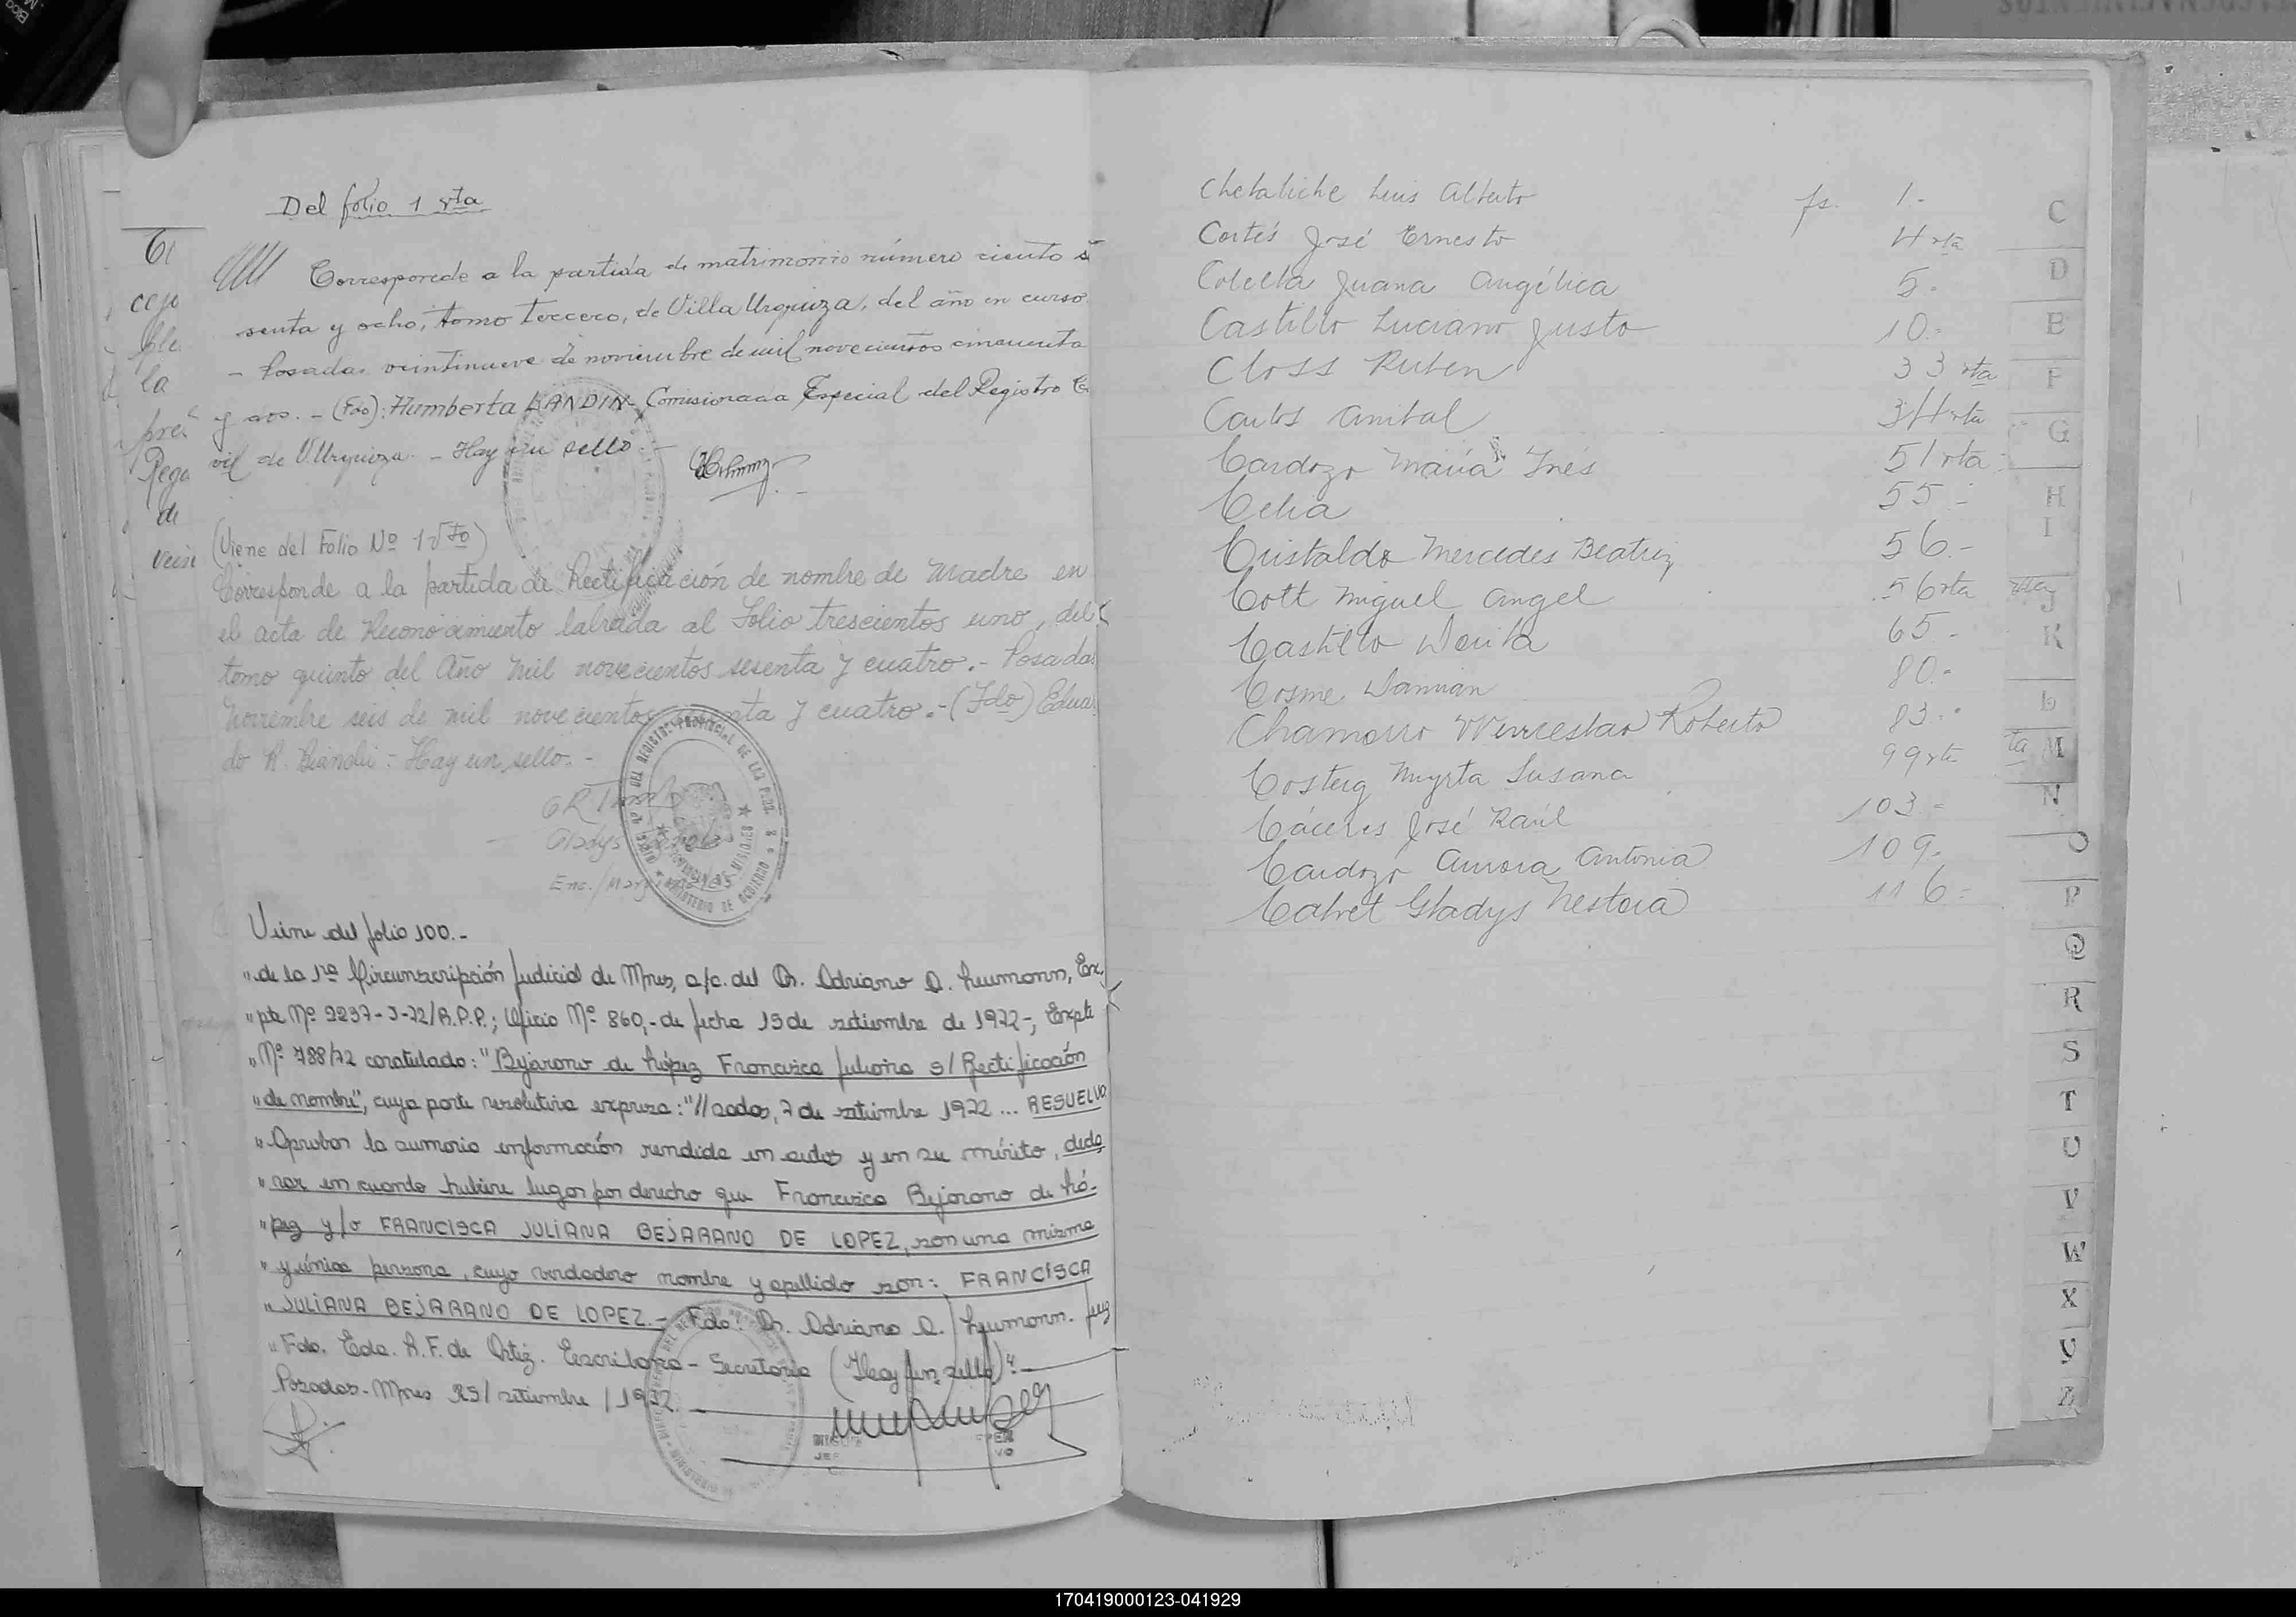 Del folio 1 vta
//// Corresporede a la partida de matrimonio número ciento se
senta y ocho, tomo tercero, de Villa Urquiza, del año en curso.
- Posadas veintinueve de noviembre de mil novecientos cincuenta
y dos. - (Fdo): Humberta LANDIN - Comisionada Especial del Registro Ci
vil de V. Urquiza. - Hay un sello. -
(Viene del Folio Nº 1 vto)
Corresponde a la partida de Rectificación de nombre de Madre en
el acta de Reconocimiento labrada al Folio trescientos uno, del
tomo quinto del Año mil novecientos sesenta y cuatro.- Posadas
Noviembre seis de mil novecientos sesenta y cuatro.-(Fdo) Eduar
do R. Biandi:- Hay un sello. -
Gladys
Viene del folio 100.-
"de la 1ra Circunscripción Judicial de Mnes, a/c. del Dr. Adriano A. Neumann, Ex,
"pte Nº 2237-J-72/R.P.P.; Oficio Nº 860,- de fecha 15 de setiembre de 1972-, Expte
"Nº 788/72 caratulado: "Bejarano de López Francisca Juliana s/ Rectificación
"de nombre", cuya parte resolutiva expresa: "//sadas, 7 de setiembre 1972 ... RESUELVO
"Aprobar la sumaria información rendida en autos y en su mérito, decla
"rar en cuando hubiere lugar por derecho que Francisca Bejarano de Ló-
"pez y/o FRANCISCA JULIANA BEJARANO DE LOPEZ, son una misma
"y única persona, cuyo verdadero nombre y apellido son: FRANCISCA
"JULIANA BEJARANO DE LOPEZ.- Fdo: Dr. Adriano A. Neumann. Juez
"Fdo. Eda. R. F. de Ortiz. Escribana - Secretaria (Hay un sello)".
Posadas - Mnes 25/ setiembre / 1972.
Chetaliche Luis Alberto fs. 1.-
Cortés José Ernesto 4 vta
Colella Juana Angélica 5.-
Castillo Luciano Justo 10.-
Closs Ruben 33 vta
Carlos Anibal 34 vta
Cardozo María Inés 51 vta
Celia 55.-
Cristaldo Mercedes Beatriz 56.-
Cott Miguel Angel 56 vta
Castillo 65.-
Cosme Damian 80.-
Chamorro Roberto 83.-
Costeig Myrta Susana 99 vta
Cáceres José Raúl 103.-
Cardozo Aurora Antonia 109.-
Calvet Gladys Nestora 116.-
C
D
E
F
G
H
I
J
K
L
M
N
O
P
Q
R
S
T
U
V
W
X
Y
Z
170419000123-041929